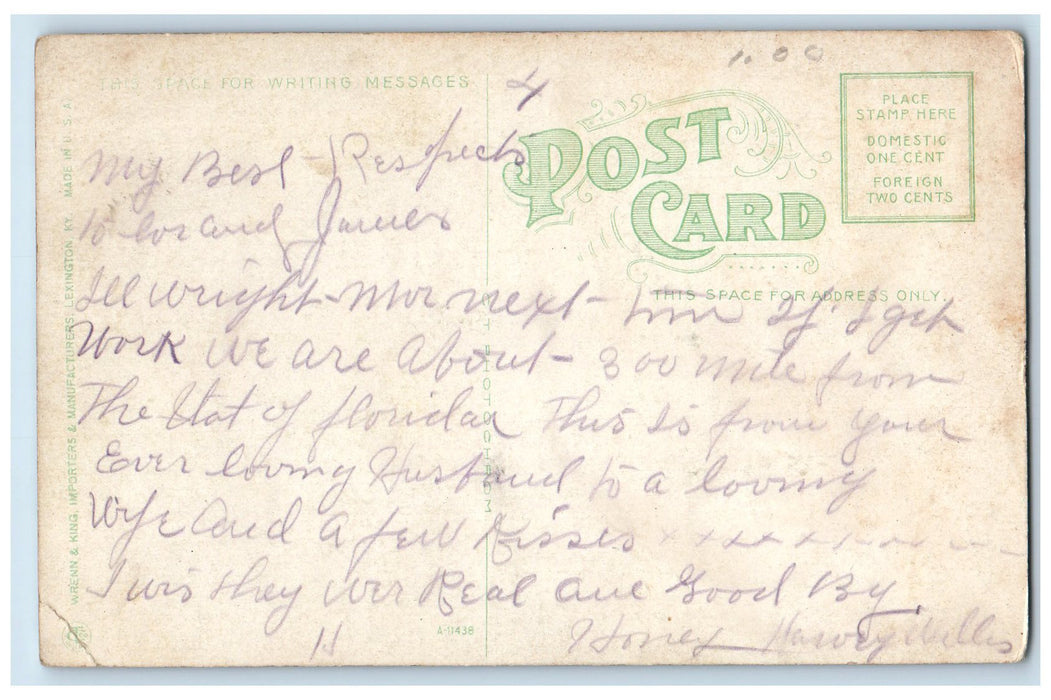 1.00
THIS SPACE FOR WRITING MESSAGES
4
POST CARD
PLACE
STAMP HERE
DOMESTIC
ONE CENT
FOREIGN
TWO CENTS
THIS SPACE FOR ADDRESS ONLY.
WRENN & KING, IMPORTERS & MANUFACTURERS, LEXINGTON, KY. MADE IN U. S. A.
My Best Respects
to and James
Ill wright mor next time If I get
Work we are About 300 mile from
The Stat of floridar This is from your
Ever loving Husband to a loving
Wife and a few Kisses x x x x x x x
I wis they wer Real and Good By
Honey Harvey Willis
11
A-11438
C.T. PHOTOCHROM